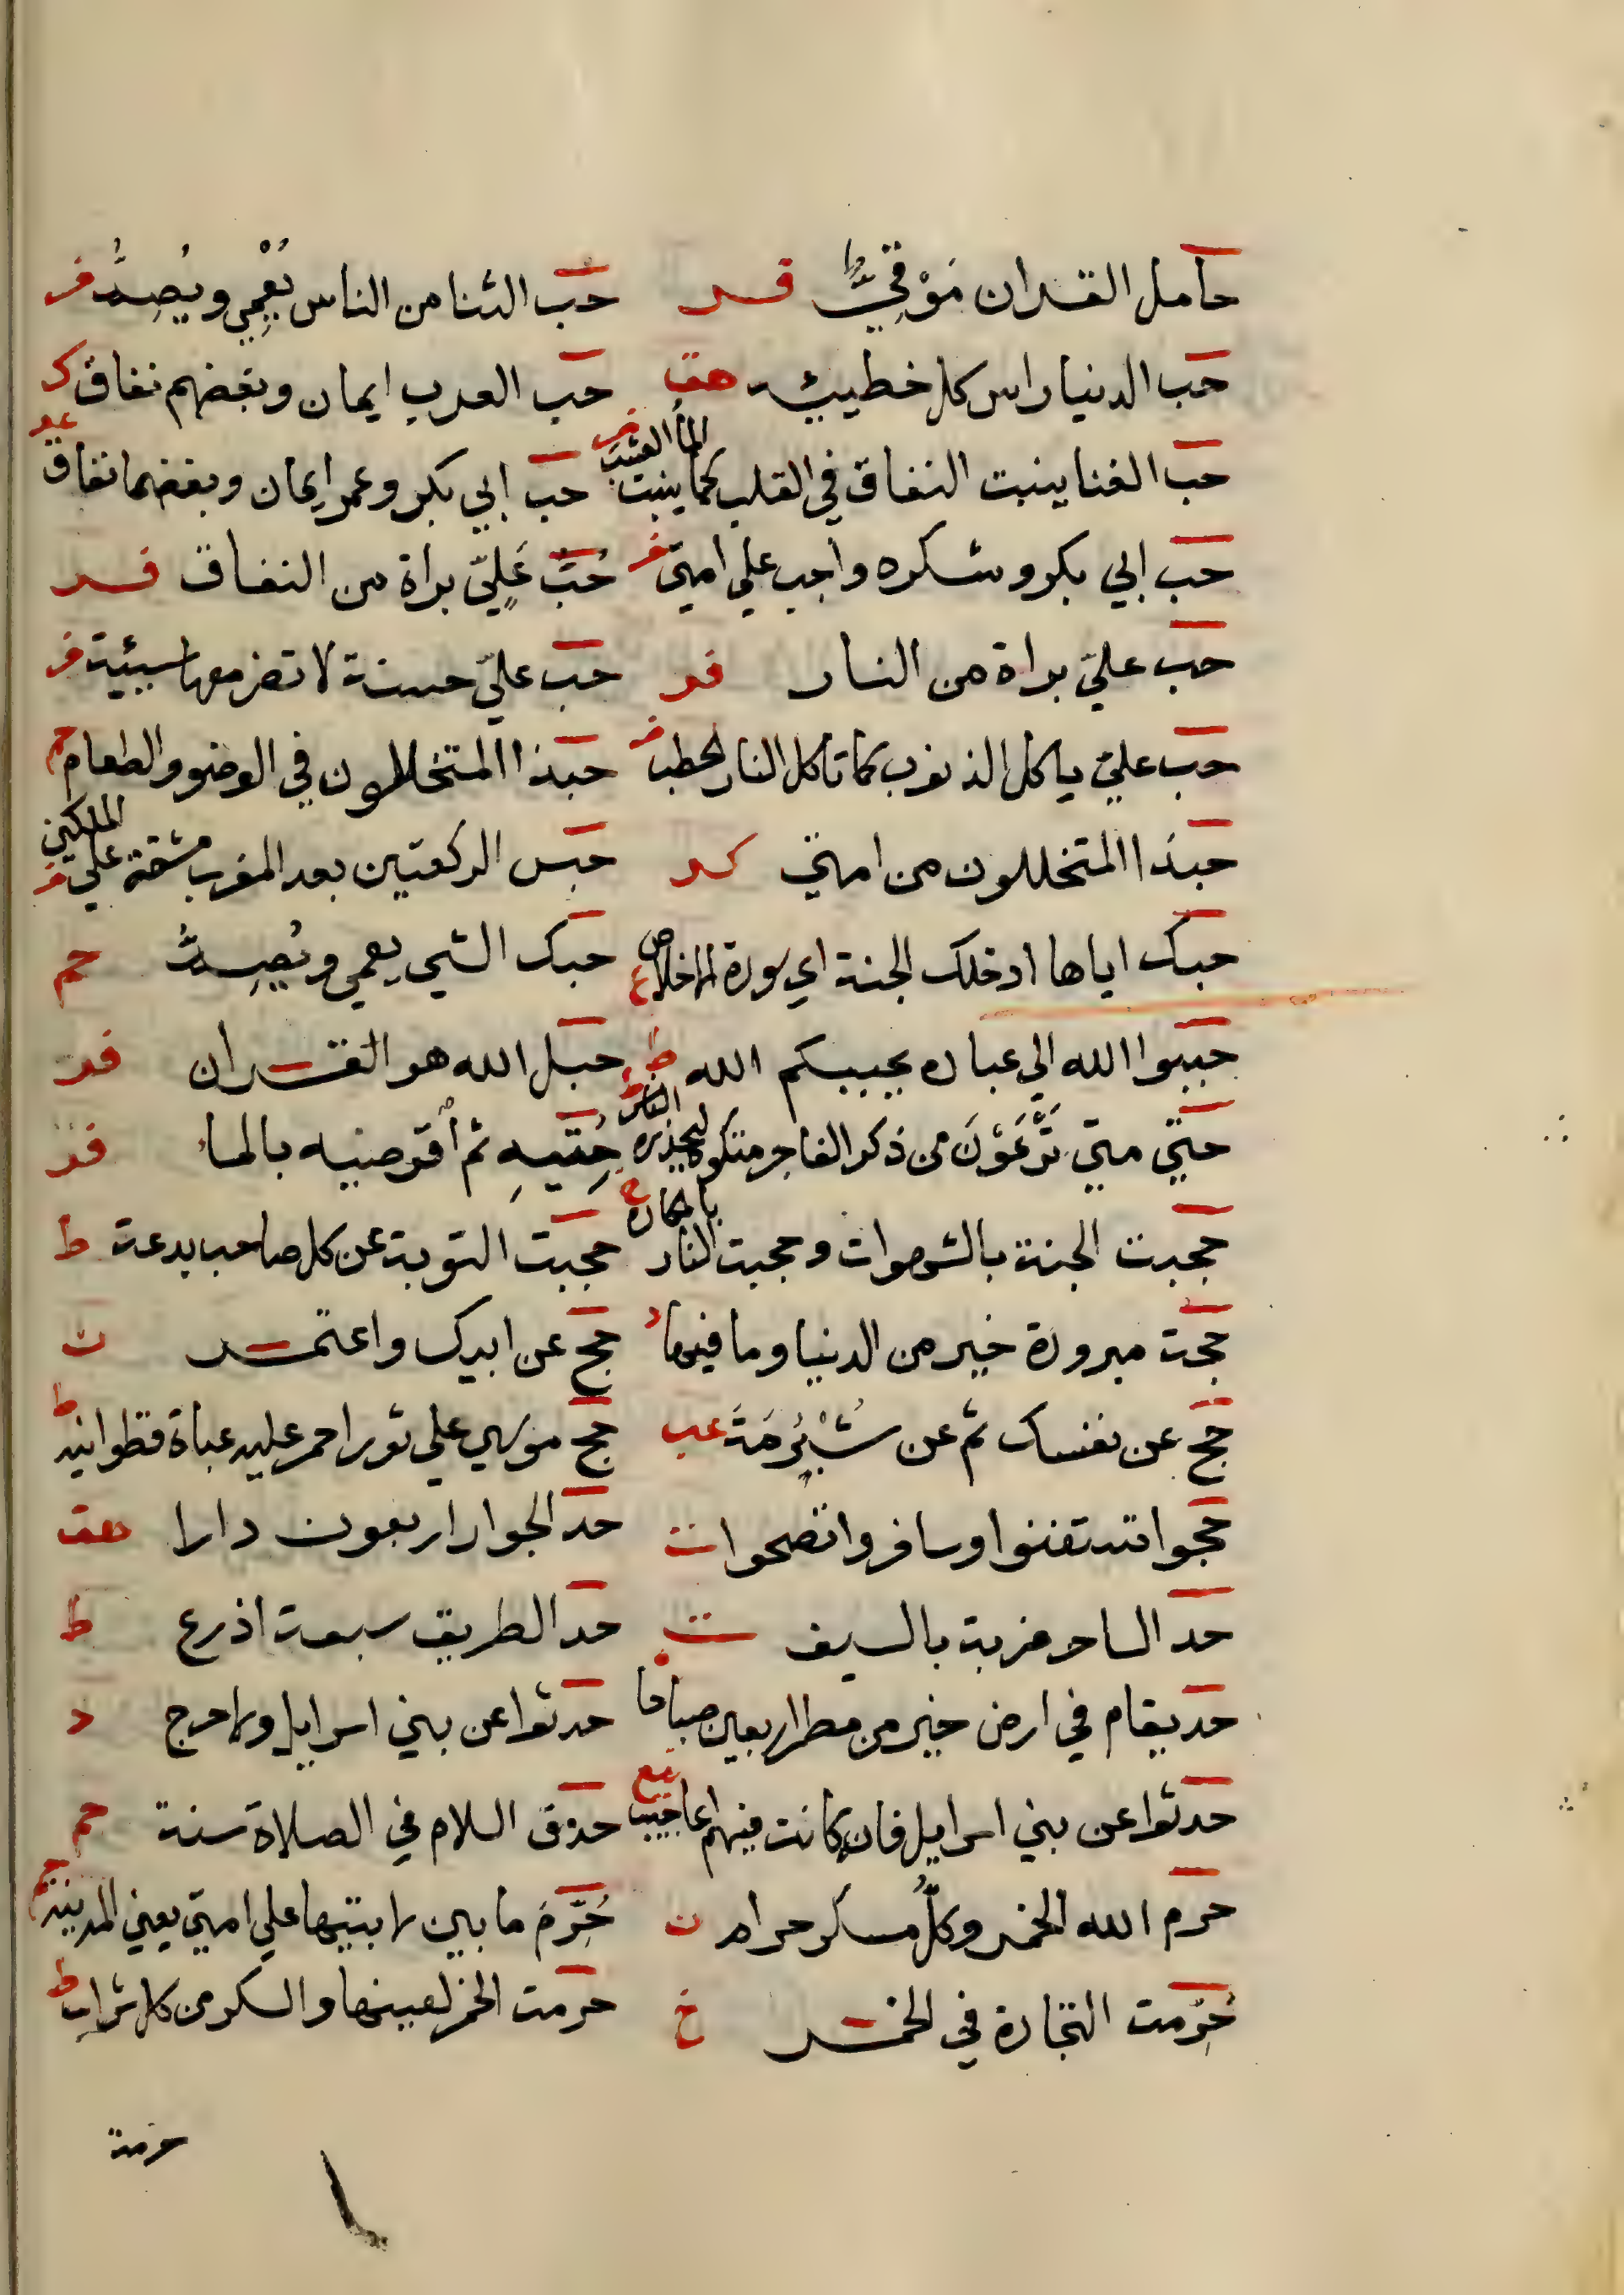 حامل القران مَوْقِيٌّ فر حب الثنا من الناس يُعْمِي ويُصِمُّ فر
حب الدنيا راس كل خطيئة هق حب العرب ايمان وبغضهم نفاق ك
حب الغنا ينبت النفاق في القلب كما ينبت الما العشب فر حب ابي بكر وعمر ايمان وبغضهما نفاق عد
حب ابي بكر وشكره واجب علي امتي فر حُبّ عَلِيّ براة من النفاق فر
حب عليّ براة من النار فر حب عليّ حسنة لا تضر معها سيئة فر
حب عليّ ياكل الذنوب كما تاكل النار الحطب فر حبذا المتخللون في الوضو والطعام حم
حبذا المتخللون من امتي كر حبس الركعتين بعد المغرب مشقة علي الملكين فر
حبك اياها ادخلك الجنة اي سورة الاخلاص ع حبك الشي يعمي ويُصِمُّ حم
حببوا الله الي عباده يحببكم الله ط حبل الله هو القران فر
حتي متي تَرْعَوْنَ من ذكر الفاجر هتكوه ليحذره الناس ط حِتِّيهِ ثم اقرصيه بالماء فر
حجبت الجنة بالشهوات وحجبت النار بالمكاره خ حجبت التوبة عن كل صاحب بدعة ط
حجة مبرورة خير من الدنيا وما فيها حج عن ابيك واعتمر ت
حج عن نفسك ثم عن شُبْرُمَةَ عب حج موسي علي ثور احمر عليه عباة قطوانية ط
حجوا تستغنوا وسافروا تصحوا حد الجوار اربعون دارا هق
حد الساحر ضربة بالسيف ت حد الطريق سبعة اذرع ط
حد يقام في ارض خير من مطر اربعين صباحا حدثوا عن بني اسرايل ولا حرج د
حدثوا عن بني اسرايل فانه كانت فيهم اعاجيب حذف السلام في الصلاة سنة حم
حرم الله الخمر وكلُّ مسكر حرام ن حُرِّمَ ما بين لابتيها علي امتي يعني المدينة خ
حُرِّمت التجارة في الخمر خ حرمت الخمر لعينها والسكر من كل شراب ط
حرمة